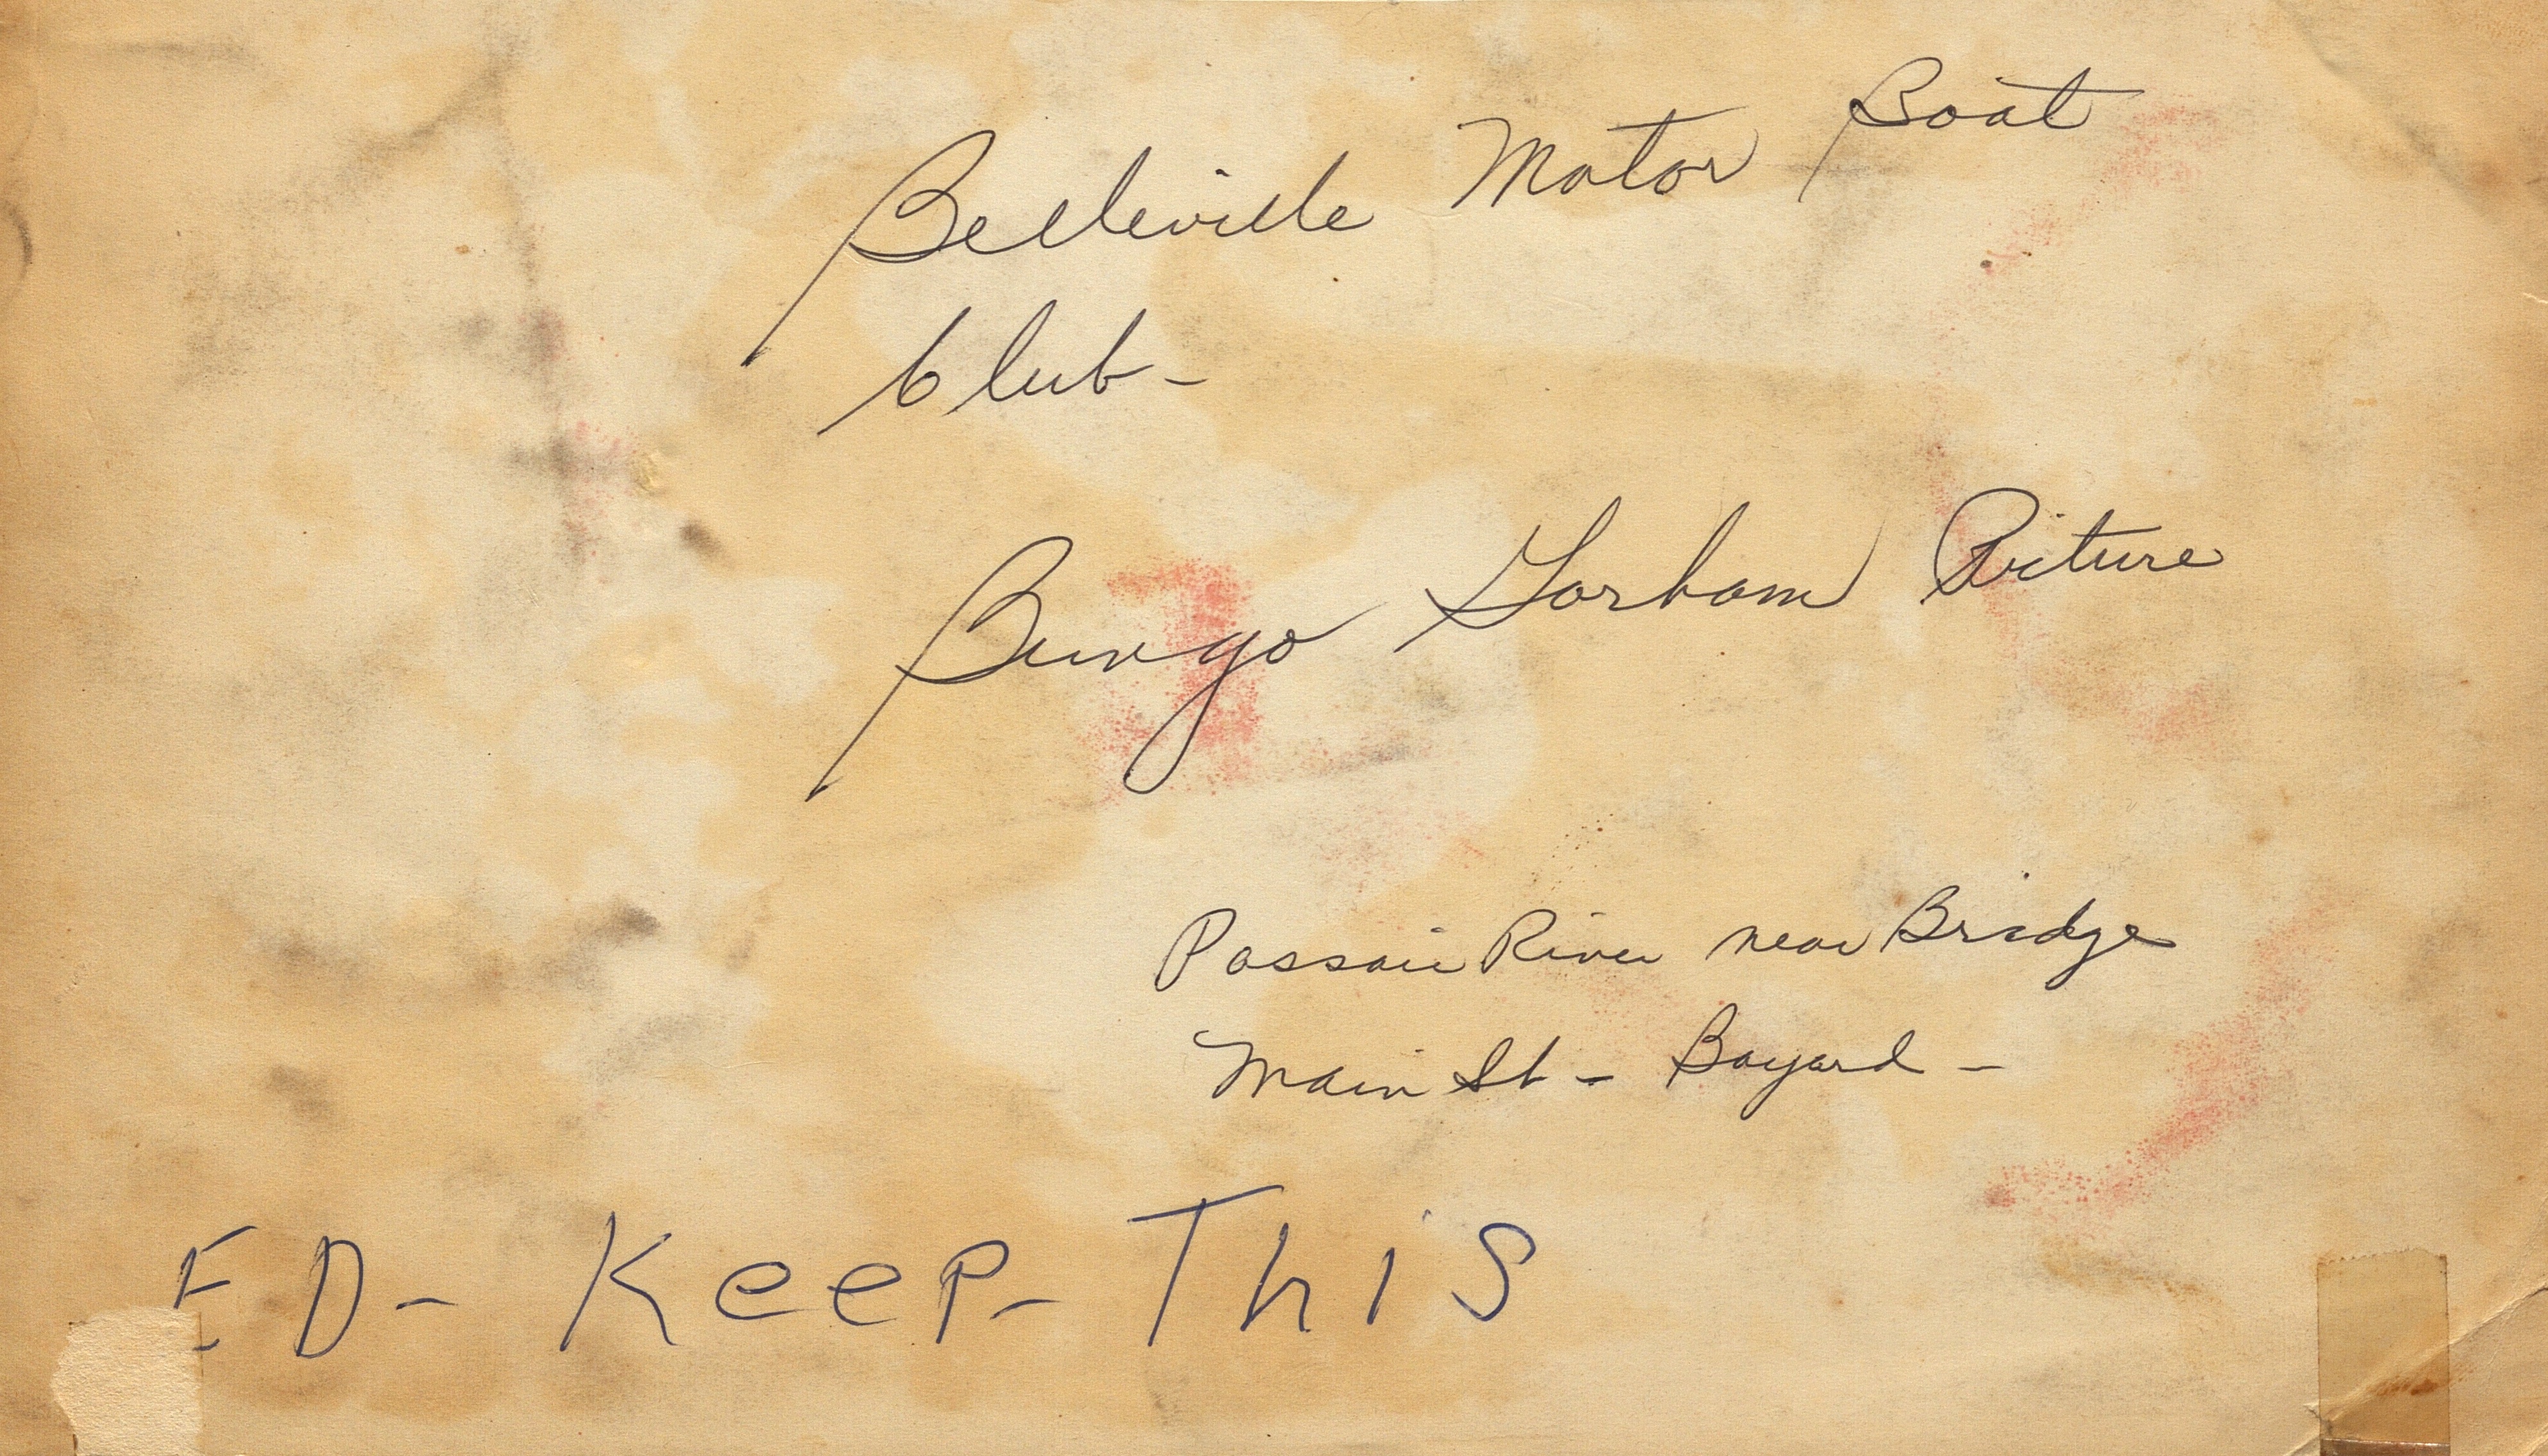 Belleville Motor Boat
Club-
Bungo Gorham Picture
Passaic River near Bridge
Main St - Bayard -
ED- Keep- This